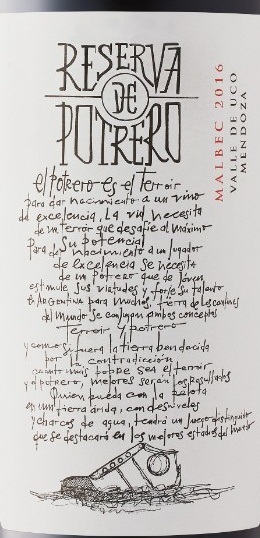 RESERVA
DE
POTRERO
MALBEC 2016
VALLE DE UCO
MENDOZA
el potrero es el terroir
para dar nacimiento a un vino
de excelencia, La vid necesita
de un terroir que desafie al máximo
Su potencial
Para dar nacimiento a un jugador
de excelencia se necesita
de un potrero que de joven
estimule sus virtudes y forje su talento
En ARGENTINA para muchos, tierra de los confines
del mundo se conjugan ambos conceptos
terroir y potrero
y como si fuera la tierra bendecida
por la contradicción
cuanto más pobre sea el terroir
y el potrero, mejores serán los Resultados
Quien pueda con la pelota
en una tierra árida, con desniveles
y charcos de agua, tendrá un juego distinguido
que se destacará en los mejores estadios del mundo